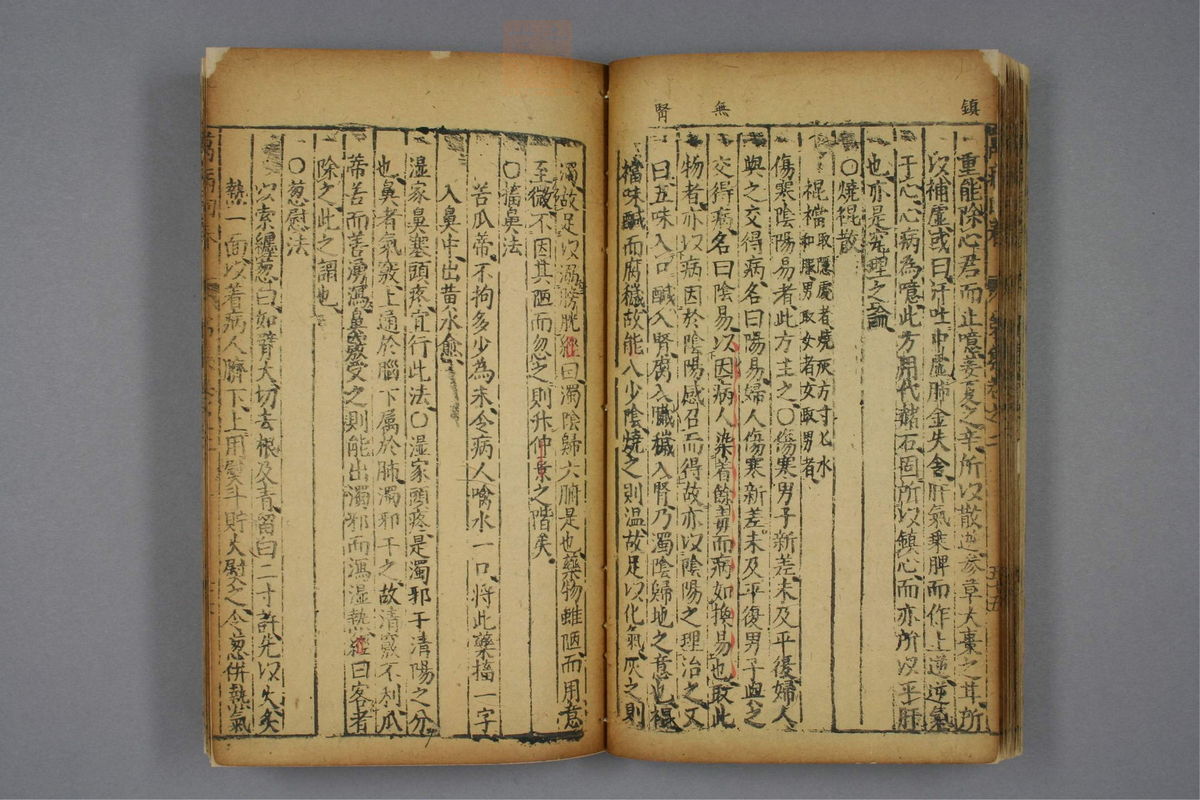 鎮
無
腎
重能除心君而止噫姜夏之辛所以散逆參草大棗之甘所
以補虛或曰汗吐中虛肺金失令肝氣乘脾而作上逆逆氣
于心心病為噫此方用代赭石固所以鎮心而亦所以平肝
也亦是究理之論
○燒裩散
裩襠取隱處者燒灰方寸匕水
和服男取女者女取男者
傷寒陰陽易者此方主之○傷寒男子新差未及平復婦人
與之交得病名曰陽易婦人傷寒新差未及平復男子與之
交得病名曰陰易以因病人染著餘毒而病如換易也取此
物者亦以病因於陰陽感召而得故亦以陰陽之理治之又
曰五味入口鹹入腎腐入臟穢入腎乃濁陰歸地之意也裩
襠味鹹而腐穢故能入少陰燒之則溫故足以化氣灰之則
濁故足以溺膀胱經曰濁陰歸六腑是也藥物雖陋而用意
至微不因其陋而忽之則升仲景之階矣
○搐鼻法
苦瓜蒂不拘多少為末令病人噙水一口將此藥搐一字
入鼻中出黃水愈
濕家鼻塞頭疼宜行此法○濕家頭疼是濁邪干清陽之分
也鼻者氣竅上通於腦下屬於肺濁邪干之故清竅不利瓜
蒂苦而善湧瀉鼻竅受之則能出濁邪而瀉濕熱經曰客者
除之此之謂也
○葱慰法
以索纏葱白如臂大切去根及青留白二寸許先以火炙
熱一面以著病人臍下上用熨斗貯火熨之令葱併熱氣